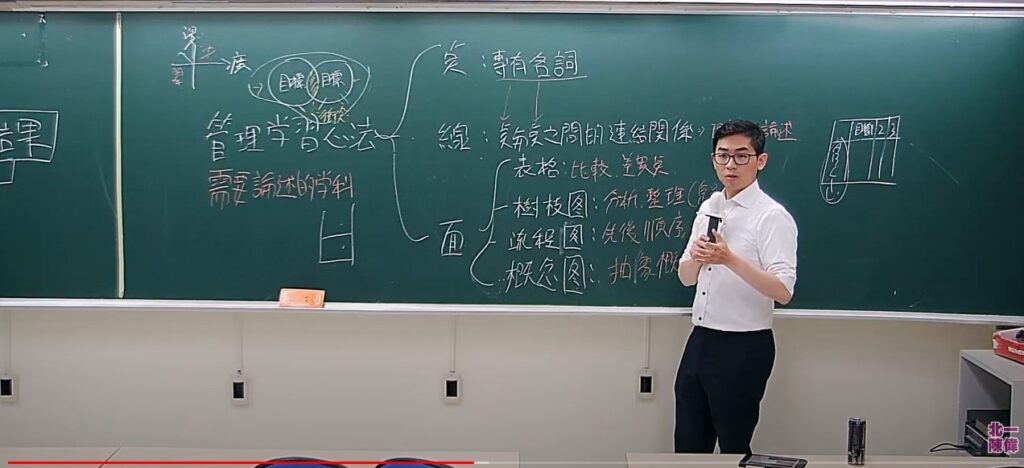 結果
目標 目標
衝突
管理学習心法
需要論述的学科
点：專有名詞
線：点與点之間的連結関係
論述
面
表格：比較.差異点
樹枝図：分析.整理
流程図：先後順序
概念図：抽象概
目標 2 3
北一
陳偉